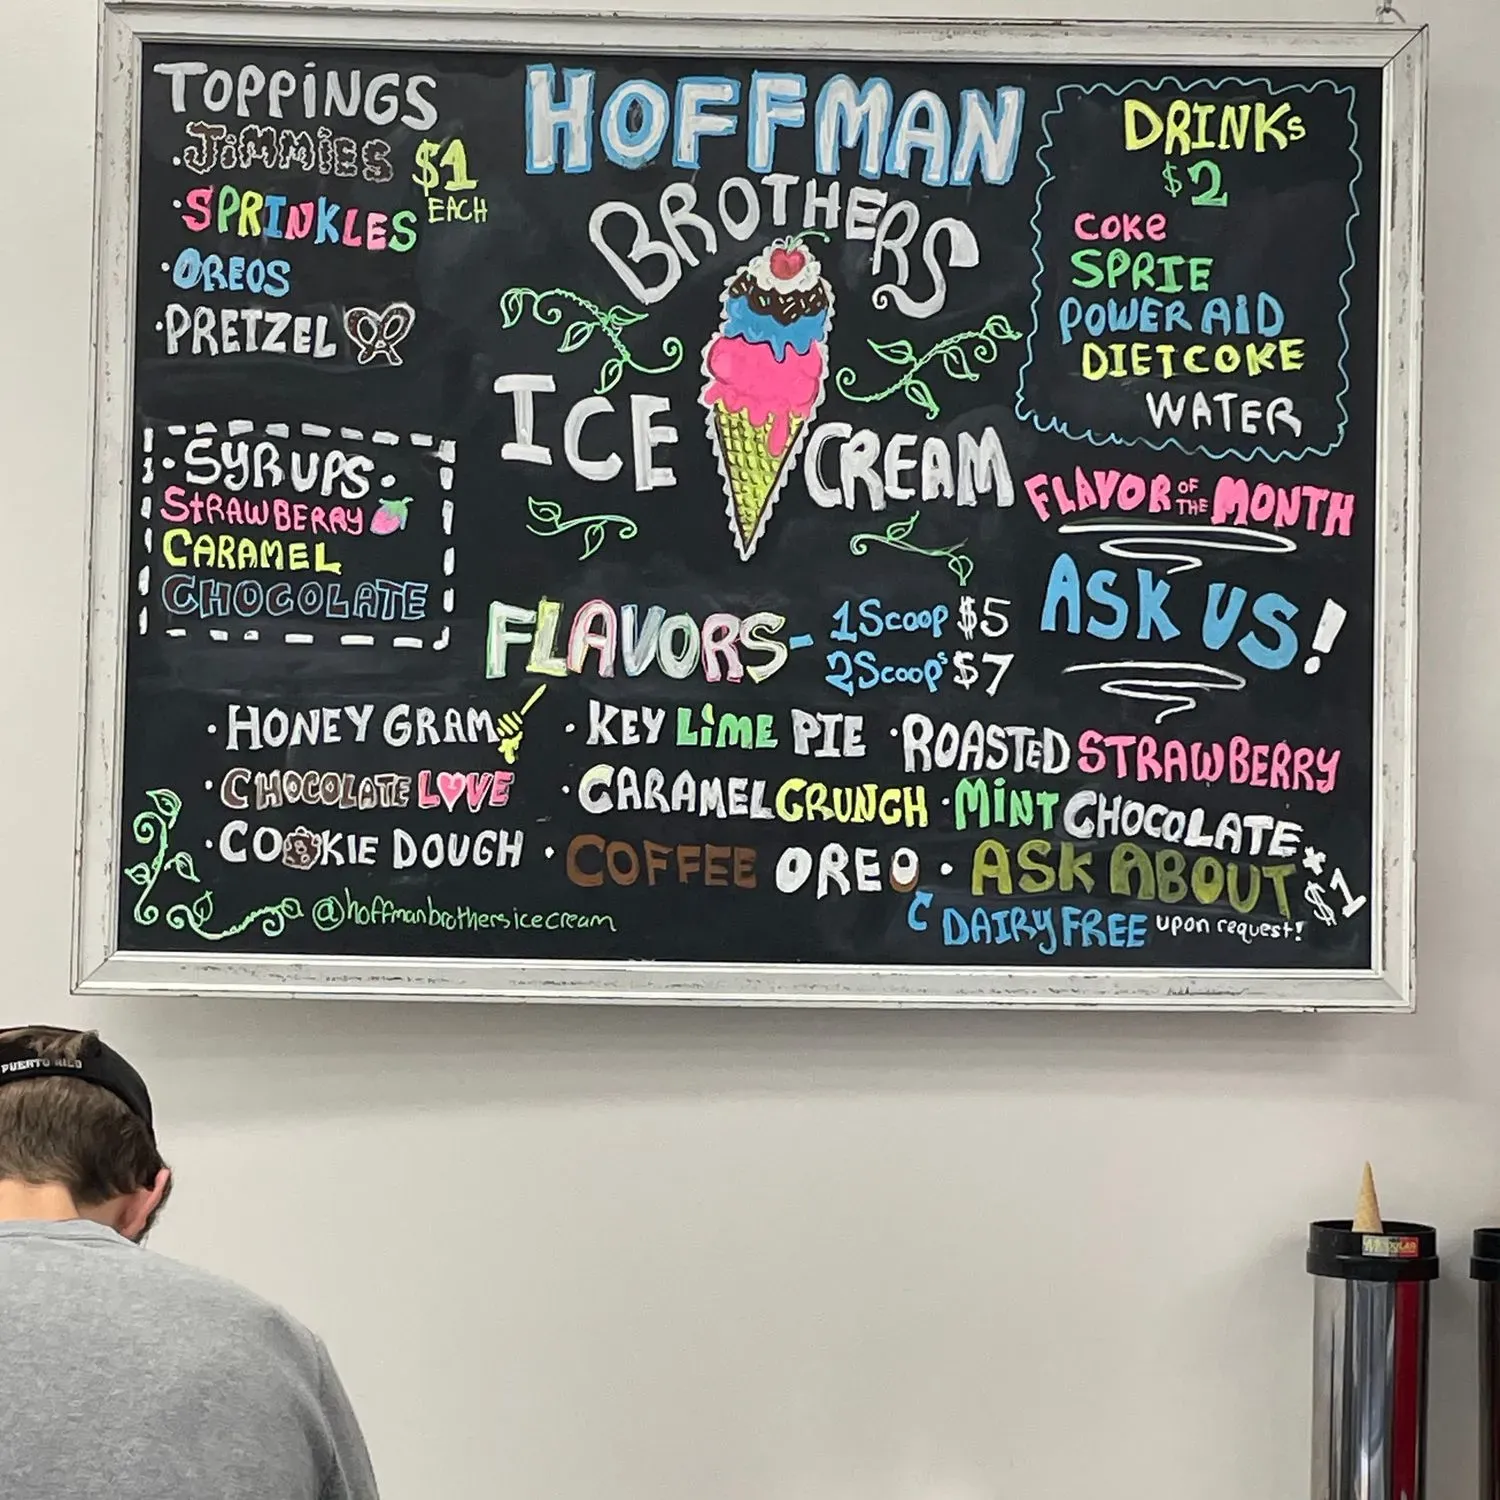 TOPPINGS
·JiMMiES $1
EACH
·SPRINKLES
·OREOS
·PRETZEL
·SYRUPS·
STRAWBERRY
CARAMEL
CHOCOLATE
HOFFMAN
BROTHERS
ICE CREAM
DRINKs
$2
COKe
SPRIE
POWERAiD
DIETCOKE
WATER
FLAVOR OF THE MONTH
ASK US!
FLAVORS- 1Scoop $5
2Scoop's $7
·HONEY GRAM ·KEY LiME PIE ·ROASTED STRAWBERRY
·CHOCOLATE LOVE ·CARAMEL CRUNCH ·MiNT CHOCOLATE
·COOKIE DOUGH ·COFFEE OREO ·ASK ABOUT *$1
DAIRY FREE upon request!
@hoffmanbrothersicecream
PUERTO RICO